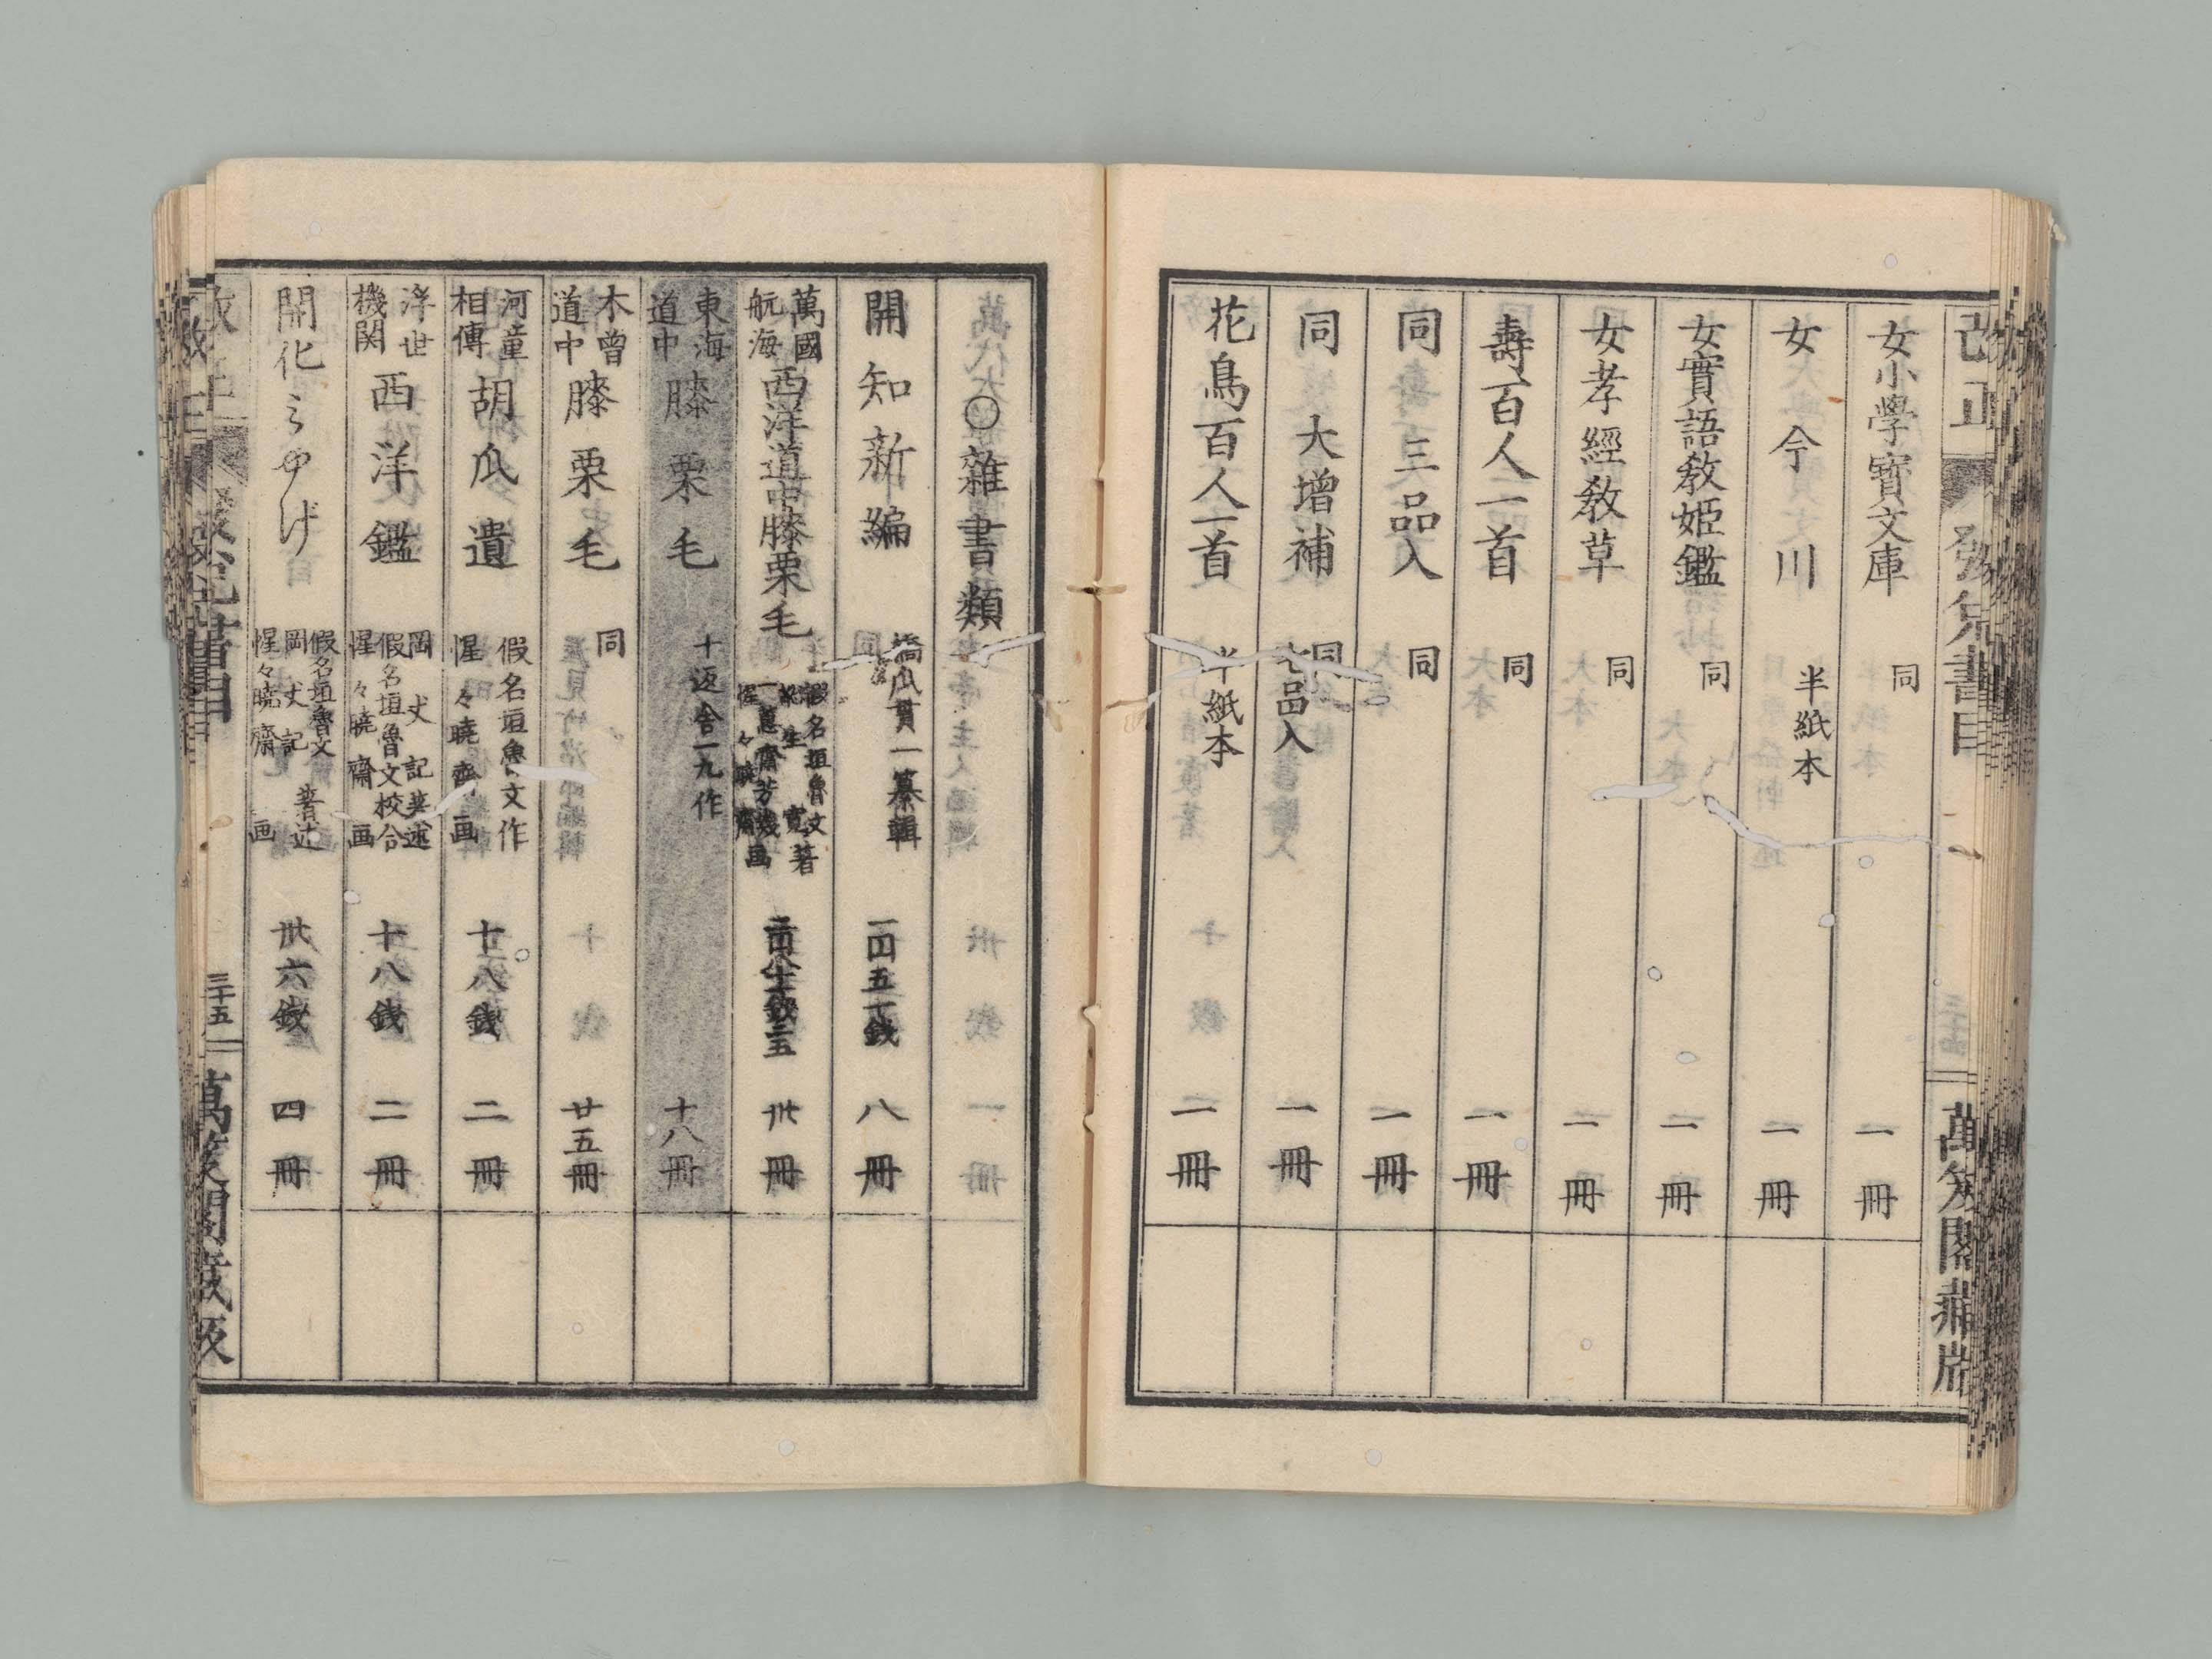 改正
發兌書目
萬笈閣藏版
女小學寳文庫 同 一冊
女今川 半紙本 一冊
女實語教姫鑑 同 一冊
女孝經教草 同 一冊
壽百人一首 同 一冊
同 三品入 同 一冊
同 大増補 同 七品入 一冊
花鳥百人一首 半紙本 一冊
〇雜書類
開知新編 橋爪貫一纂輯 八冊
萬國航海 西洋道中膝栗毛 假名垣魯文 著 一蕙齋芳幾 惺々暁齋 画 卅冊
東海道中 膝栗毛 十返舎一九作 十八冊
木曽道中 膝栗毛 同 廿五冊
河童相傳 胡瓜遺 假名垣魯文作 惺々暁齋画 十八錢 二冊
浮世機関 西洋鑑 岡丈記著述 假名垣魯文校合 惺々暁齋画 十八錢 二冊
開化之入口
假名垣魯文 岡丈記 著述 惺々暁齋画 卅六錢 四冊
三十五
萬笈閣藏版